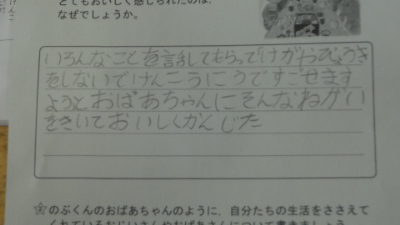 とてもおいしく感じられたのは、
なぜでしょうか。
いろんなことを話してもらってけがやびょうき
をしないでけんこうにうですごせます
ようにとおばあちゃんにそんなねがい
をきいておいしくかんじた
のぶくんのおばあちゃんのように、自分たちの生活をささえて
くれているおじいさんやおばあさんについて書きましょう。